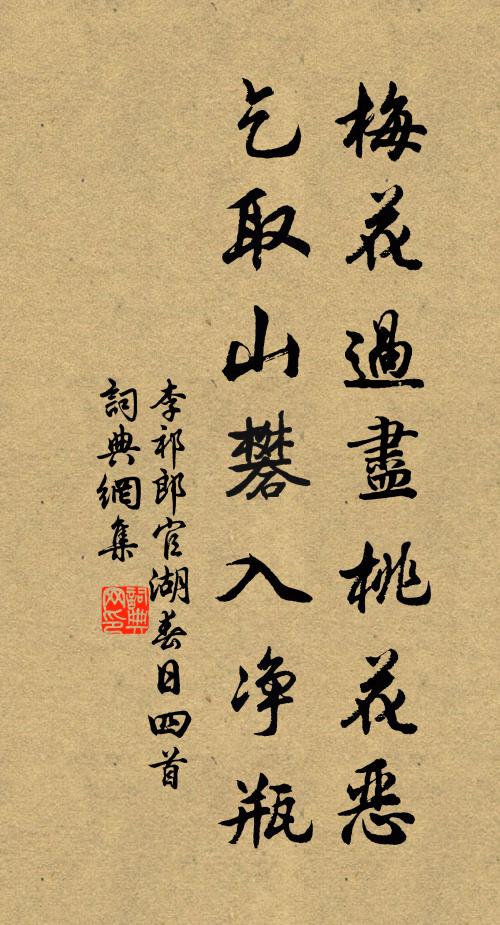 梅花過盡桃花惡
乞取山礬入净瓶
李祁郎官湖春日四首
詞典網集
詞典网印